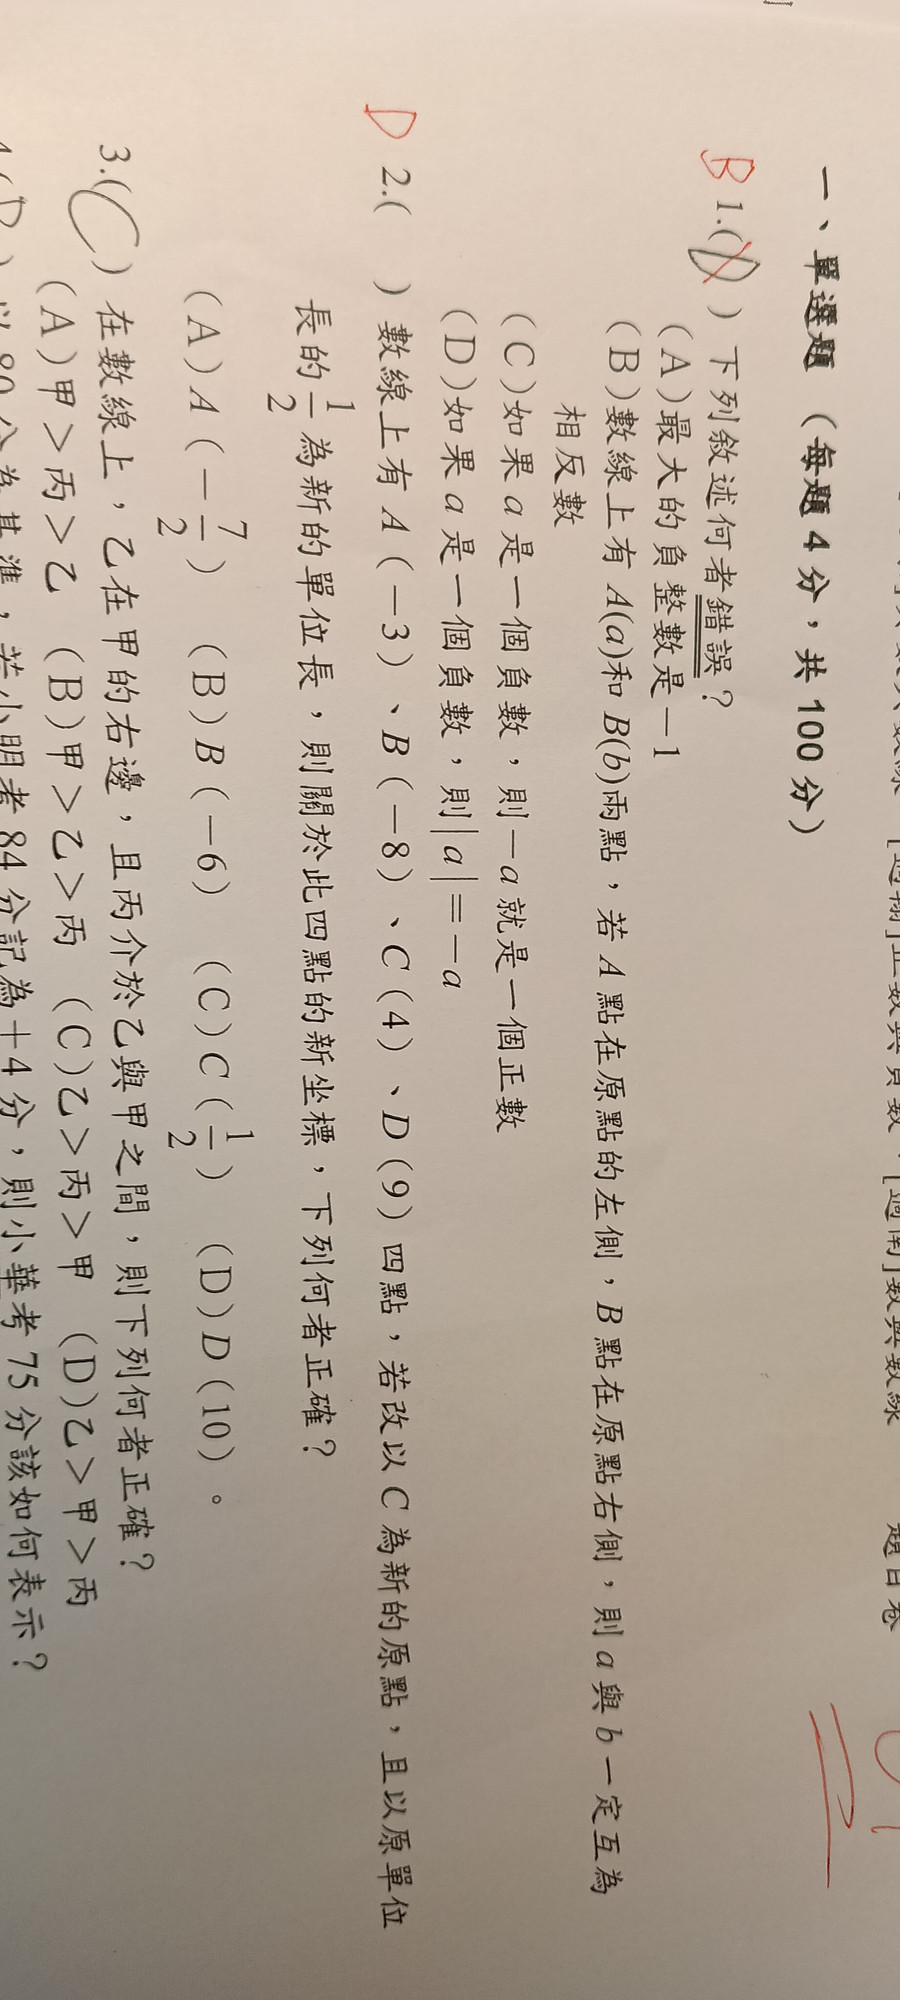 一、單選題（每題 4 分，共 100 分）
B 1.(D) 下列敘述何者錯誤？
(A)最大的負整數是－1
(B)數線上有 A(a)和 B(b)兩點，若 A 點在原點的左側，B 點在原點右側，則 a 與 b 一定互為
相反數
(C)如果 a 是一個負數，則－a 就是一個正數
(D)如果 a 是一個負數，則|a|＝－a
D 2.( ) 數線上有 A（－3）、B（－8）、C（4）、D（9）四點，若改以 C 為新的原點，且以原單位
長的1/2為新的單位長，則關於此四點的新坐標，下列何者正確？
(A)A（－7/2） (B)B（－6） (C)C（1/2） (D)D（10）。
3.(C) 在數線上，乙在甲的右邊，且丙介於乙與甲之間，則下列何者正確？
(A)甲＞丙＞乙 (B)甲＞乙＞丙 (C)乙＞丙＞甲 (D)乙＞甲＞丙
以 80 分為基準，若小明考 84 分記為＋4 分，則小華考 75 分該如何表示？